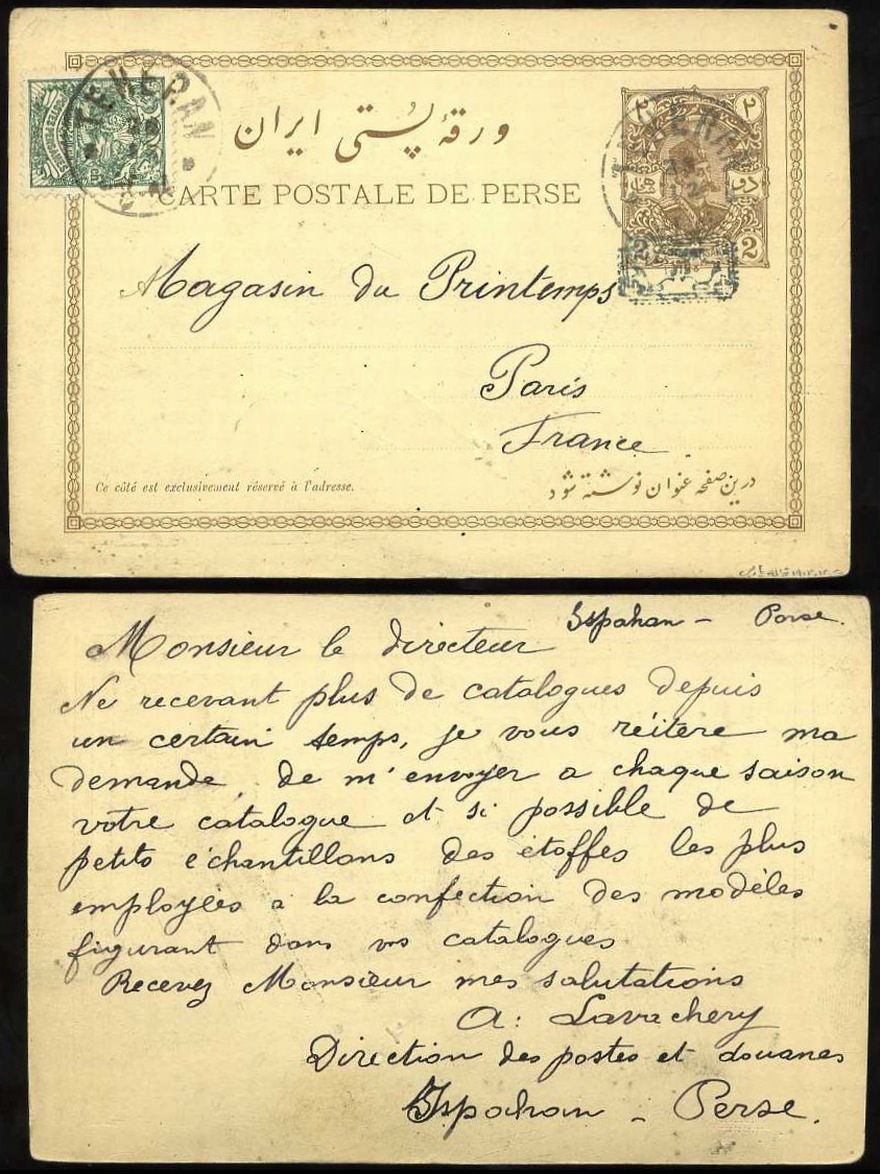 TEHERAN
ورقهٔ پستی ایران
CARTE POSTALE DE PERSE
۲ ۲
TEHERAN
دو
2 2
Magasin du Printemps
Paris
France
Ce côté est exclusivement réservé à l'adresse.
درین صفحه عنوان نوشته شود
Ispahan - Perse.
Monsieur le directeur
Ne recevant plus de catalogues depuis
un certain temps, je vous réitère ma
demande de m'envoyer a chaque saison
votre catalogue et si possible de
petits échantillons des étoffes les plus
employées a la confection des modèles
figurant dans vos catalogues
Recevez Monsieur mes salutations
A: Lavachery
Direction des postes et douanes
Ispahan - Perse.